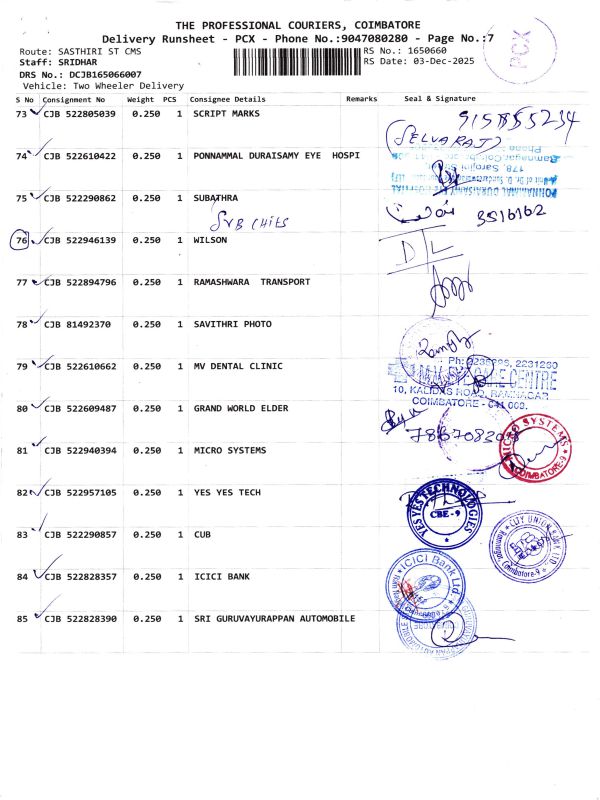 THE PROFESSIONAL COURIERS, COIMBATORE
Delivery Runsheet - PCX - Phone No.:9047080280 - Page No.:7
PCX
Route: SASTHIRI ST CMS
RS No.: 1650660
Staff: SRIDHAR
RS Date: 03-Dec-2025
DRS No.: DCJB165066007
Vehicle: Two Wheeler Delivery
S No Consignment No Weight PCS Consignee Details Remarks Seal & Signature
73 CJB 522805039 0.250 1 SCRIPT MARKS
(SELVARAJ)
74 CJB 522610422 0.250 1 PONNAMMAL DURAISAMY EYE HOSPI
178, Sarojini
75 CJB 522290862 0.250 1 SUBATHRA
9516162
SUB CHITS
76 CJB 522946139 0.250 1 WILSON
D L
77 CJB 522894796 0.250 1 RAMASHWARA TRANSPORT
78 CJB 81492370 0.250 1 SAVITHRI PHOTO
79 CJB 522610662 0.250 1 MV DENTAL CLINIC
Ph: 2236296, 2231230
M.V. EYE CARE CENTRE
10, KALIDAS ROAD, RAMNAGAR
COIMBATORE - 641 009.
80 CJB 522609487 0.250 1 GRAND WORLD ELDER
81 CJB 522940394 0.250 1 MICRO SYSTEMS
MICRO SYSTEMS COIMBATORE-9
82 CJB 522957105 0.250 1 YES YES TECH
YES YES TECHNOLOGIES CBE - 9
83 CJB 522290857 0.250 1 CUB
CITY UNION BANK LTD. Ramnagar Coimbatore-9
84 CJB 522828357 0.250 1 ICICI BANK
ICICI Bank Ltd.
85 CJB 522828390 0.250 1 SRI GURUVAYURAPPAN AUTOMOBILE